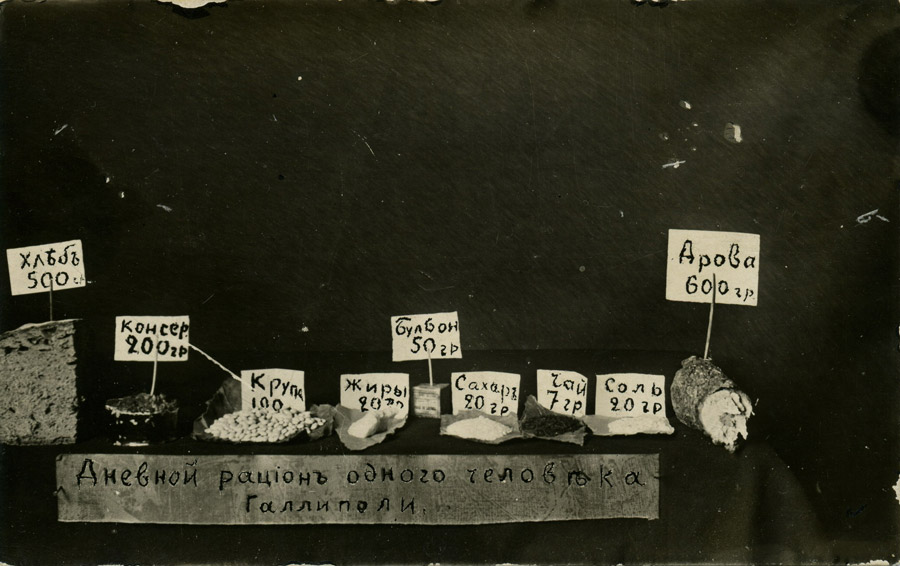 Хлѣбъ
500 гр
Консер
200 гр
Крупа
100
Жиры
20 гр
Бульон
50 гр
Сахаръ
20 гр
Чай
7 гр
Соль
20 гр
Дрова
600 гр
Дневной раціонъ одного человѣка
Галлиполи.